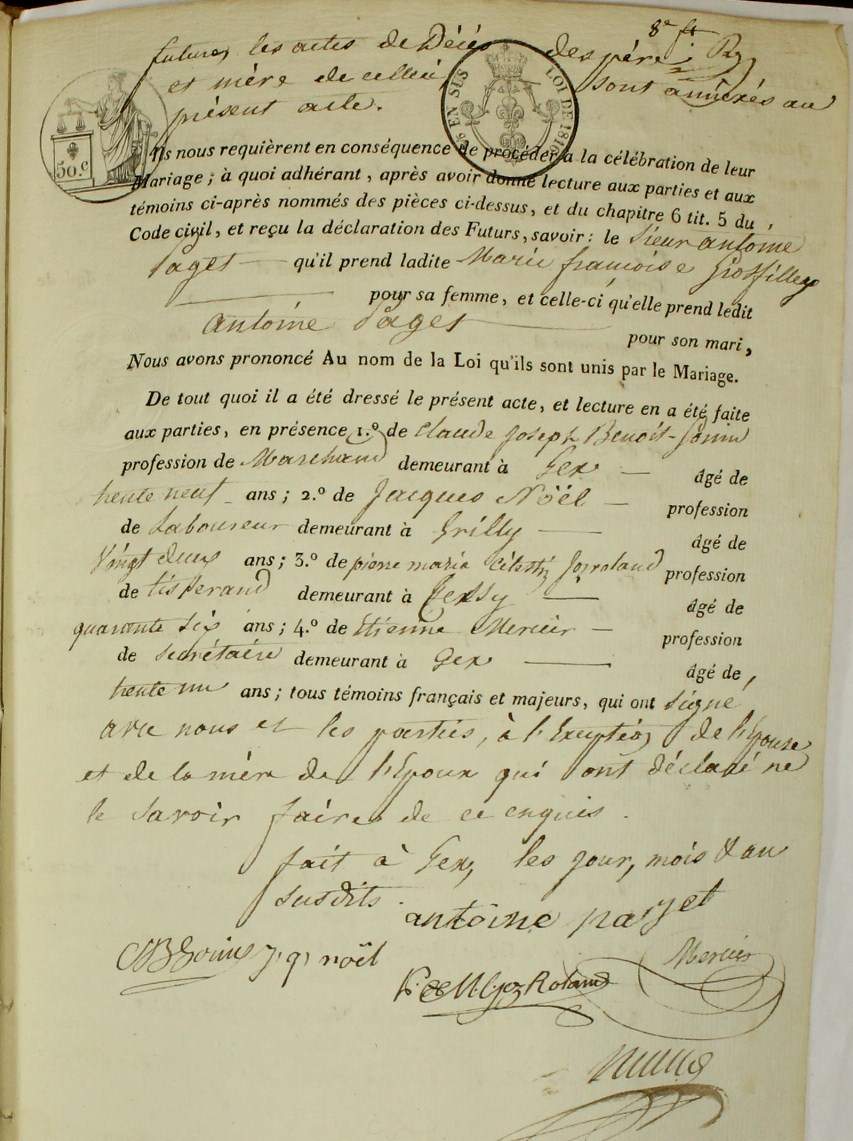 8e ft
futures, les actes de Décès des père Rg
et mère de celle ci sont annexés au
présent acte.
50.c
EN SUS LOI DE 1816
Ils nous requièrent en conséquence de procéder à la célébration de leur
Mariage ; à quoi adhérant , après avoir donné lecture aux parties et aux
témoins ci-après nommés des pièces ci-dessus, et du chapitre 6 tit. 5 du
Code civil, et reçu la déclaration des Futurs, savoir : le Sieur antoine
Paget qu'il prend ladite Marie françoise Grosfilley
pour sa femme, et celle-ci qu'elle prend ledit
antoine Paget pour son mari,
Nous avons prononcé Au nom de la Loi qu'ils sont unis par le Mariage.
De tout quoi il a été dressé le présent acte, et lecture en a été faite
aux parties, en présence 1.º de Claude Joseph Benoit-Gonin
profession de Marchand demeurant à Gex âgé de
trente neuf ans ; 2.º de Jacques Noël profession
de Laboureur demeurant à Grilly âgé de
Vingt deux ans ; 3.º de pierre marie Célestin profession
de tisserand demeurant à Cessy âgé de
quarante six ans ; 4.º de Etienne Mercier profession
de secrétaire demeurant à Gex âgé de
trente un ans ; tous témoins français et majeurs, qui ont signé
avec nous et les parties, à l'Exception de l'Epouse
et de la mère de l'Epoux qui ont déclaré ne
le savoir faire de ce enquis.
fait à Gex, les jour, mois & an
susdits.
antoine paget
J. q. noël
Mercier
Roland